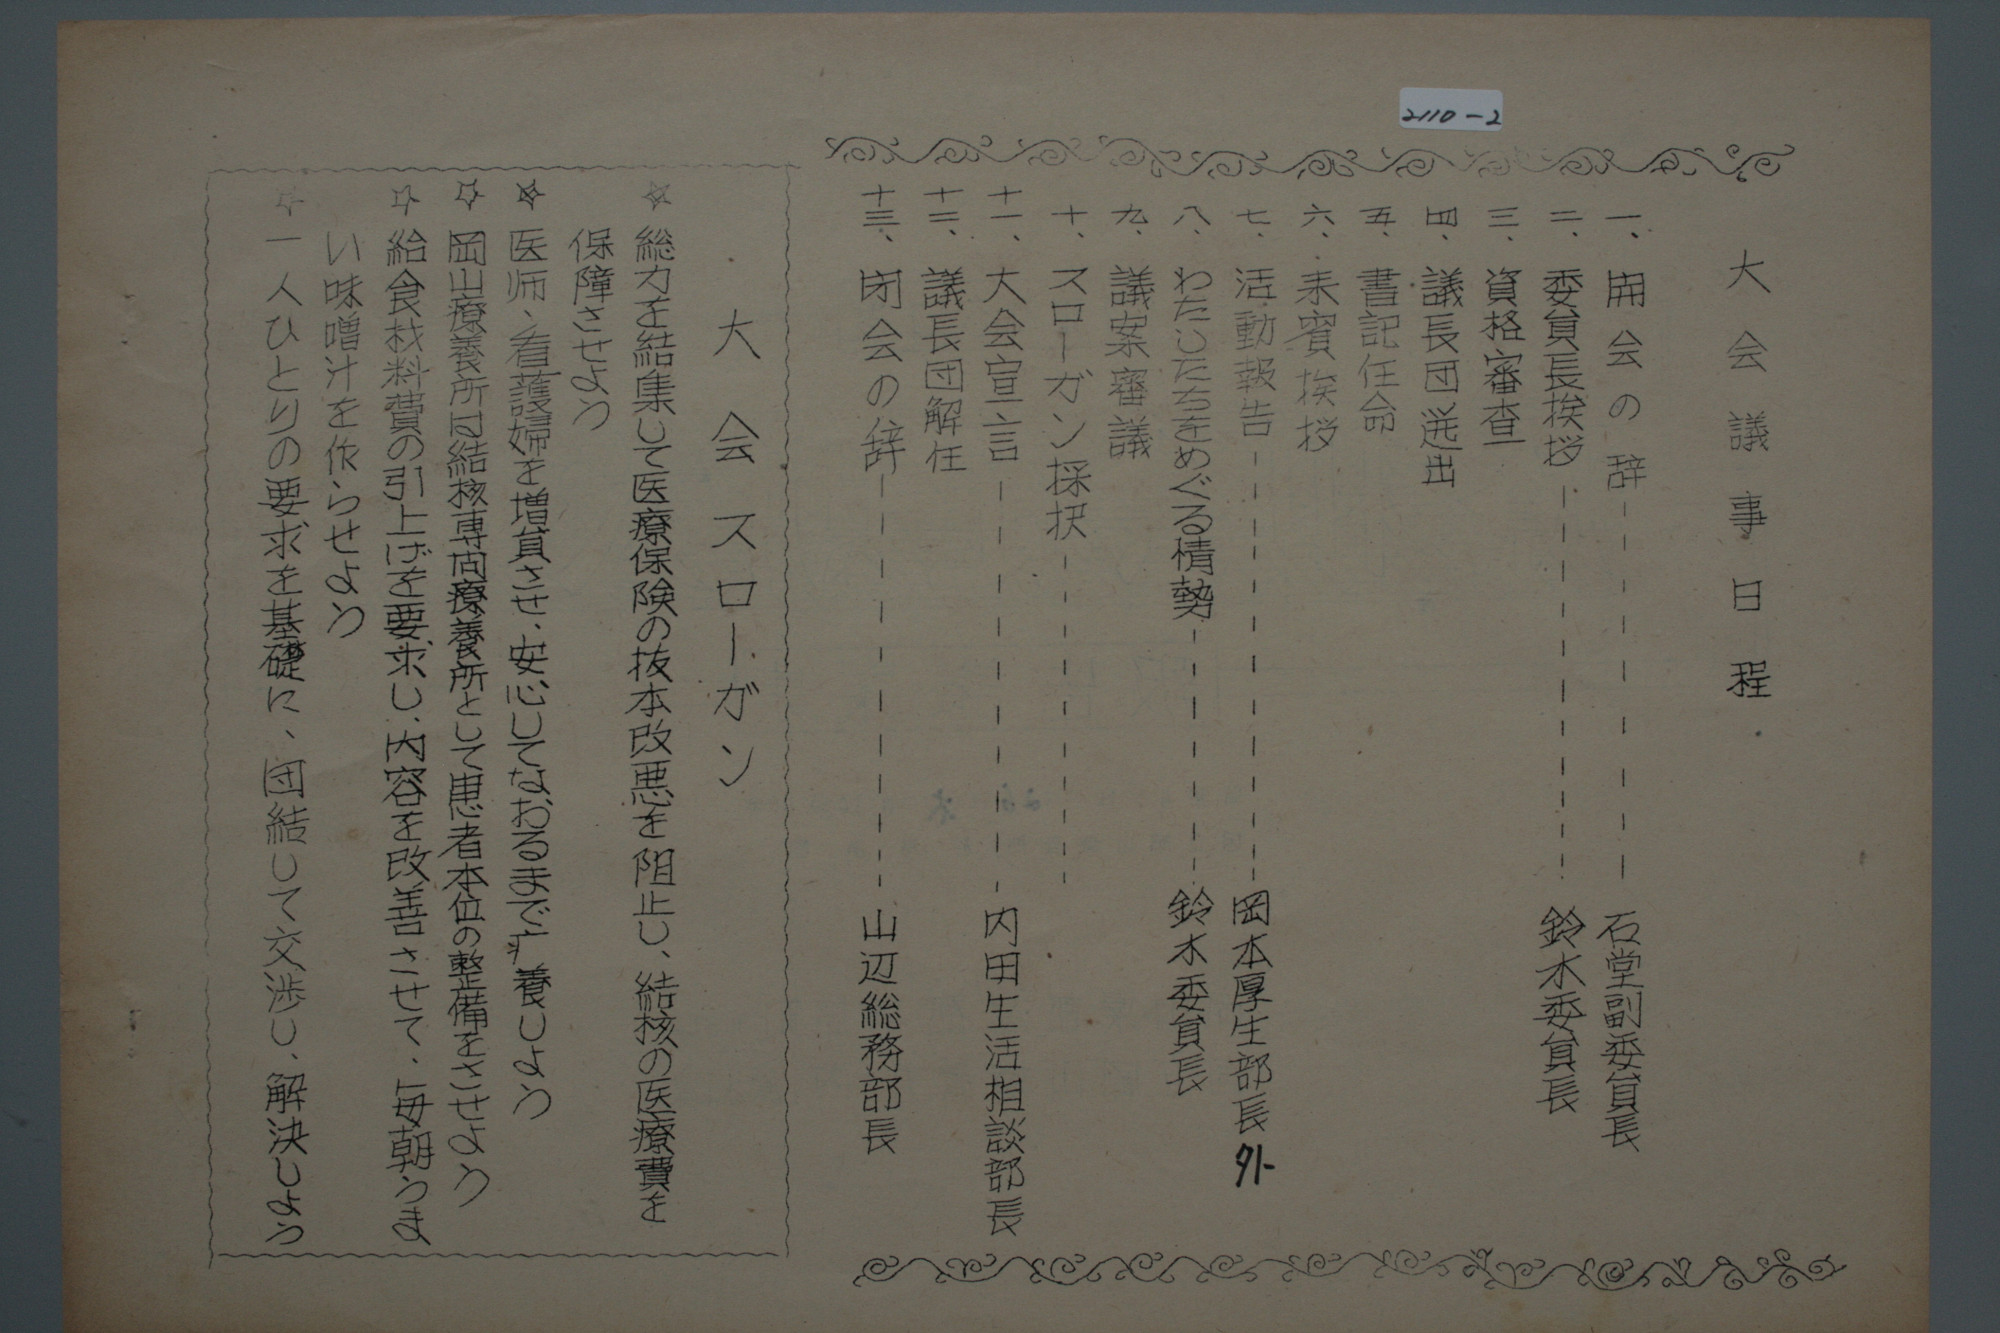 2110-2
大会議事日程
一、開会の辞 石堂副委員長
二、委員長挨拶 鈴木委員長
三、資格審査
四、議長団選出
五、書記任命
六、来賓挨拶
七、活動報告 岡本厚生部長外
八、わたしたちをめぐる情勢 鈴木委員長
九、議案審議
十、スローガン採択
十一、大会宣言 内田生活相談部長
十二、議長団解任
十三、閉会の辞 山辺総務部長
大会スローガン
☆総力を結集して医療保険の抜本改悪を阻止し、結核の医療費を
保障させよう
☆医师、看護婦を増員させ、安心してなおるまで疒養しよう
☆岡山療養所は結核専门療養所として患者本位の整備をさせよう
☆給食材料費の引上げを要求し、内容を改善させて、毎朝うま
い味噌汁を作らせよう
☆一人ひとりの要求を基礎に、団結して交渉し、解決しよう